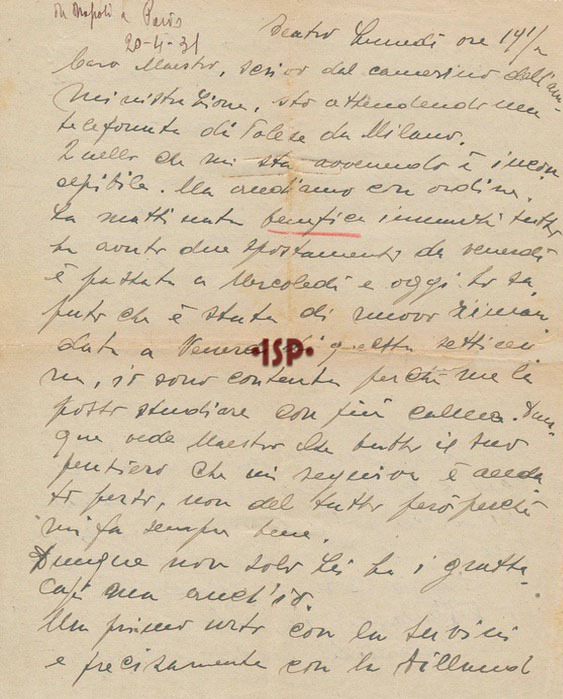 da Napoli a Paris
20-4-31
Teatro Lunedì ore 14 1/2
Caro Maestro, scrivo dal camerino dell'am-
ministrazione, sto attendendo una
telefonata di da Milano.
Quello che mi sta avvenendo è incon
cepibile. Ma andiamo con ordine.
La mattinata benefica tutto
ha avuto due spostamenti da venerdì
è passata a Mercoledì e oggi ho sa
puto che è stata di nuovo riman
data a Venerdì di questa settima
na, io sono contenta perché me la
posso studiare con più calma. Dun-
que vede Maestro che tutto il suo
pensiero che mi seguiva è anda
to perso, non del tutto però perché
mi fa sempre bene.
Dunque non solo Lei ha i gratta
capi ma anch'io.
Un primo urto con la
e precisamente con la
•ISP•